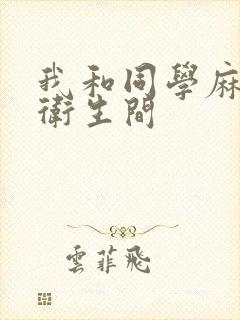 我和同學麻
衛生間
雲菲飛